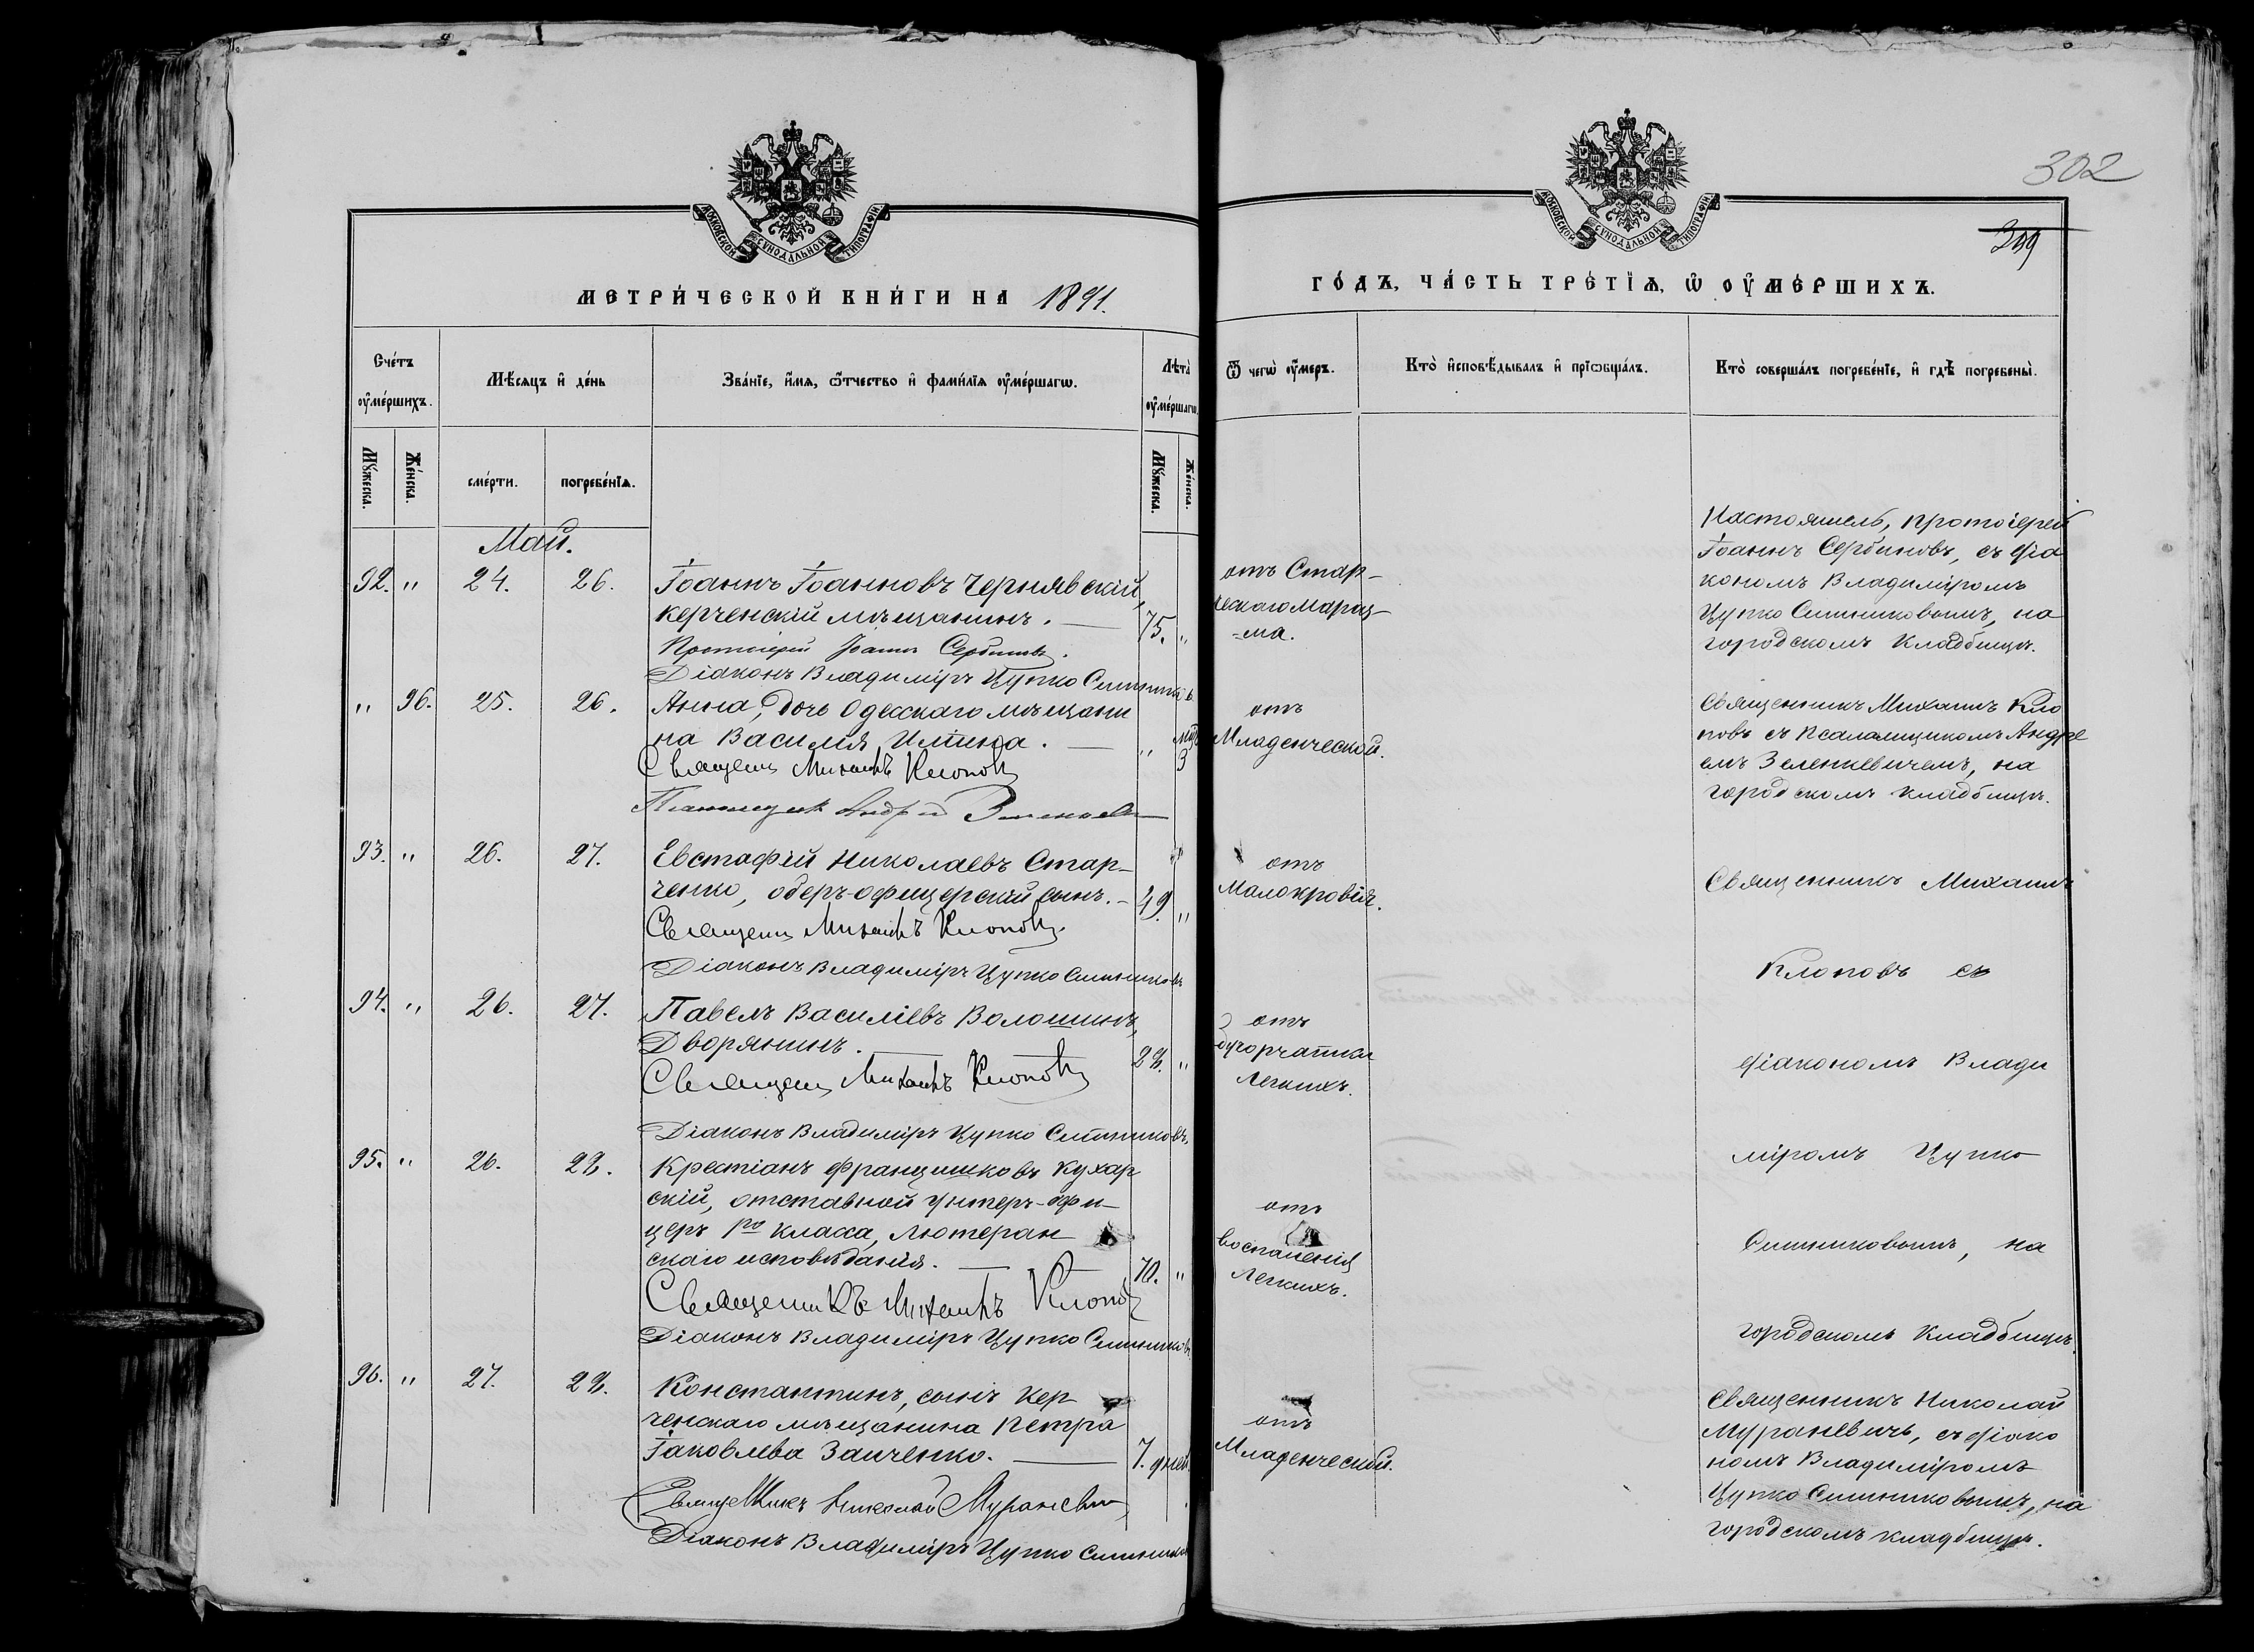 302
399
МОСКОВСКОЙ СѴНОДАЛЬНОЙ ТИПОГРАФІИ
МОСКОВСКОЙ СѴНОДАЛЬНОЙ ТИПОГРАФІИ
МЕТРИ́ЧЕСКОЙ КНИ́ГИ НА 1891.
ГО́ДЪ, ЧА́СТЬ ТРЕ́ТІѦ, Ѡ҆ ОУ҆МЕ́РШИХЪ.
Сче́тъ
оу҆ме́ршихъ.
Мꙋ́жеска.
Же́нска.
Мѣ́сяцъ и҆ де́нь
сме́рти.
погребе́нїѧ.
Зва́нїе, и҆́мѧ, ѻ҆́тчество и҆ фами́лїѧ оу҆ме́ршагѡ.
Лѣ́та
оу҆ме́ршагѡ.
Мꙋ́жеска.
Же́нска.
Ѿ чегѡ̀ оу҆́меръ.
Кто̀ и҆сповѣ́дывалъ и҆ прїѡбща́лъ.
Кто̀ соверша́лъ погребе́нїе, и҆ гдѣ̀ погребены̀.
Май.
92. " 24. 26.
Іоаннъ Іоанновъ Чернявскій,
керченскій мѣщанинъ. — 75. "
Протоіерей Іоаннъ Сербиновъ.
Діаконъ Владиміръ Цупко Ситниковъ
отъ Стар-
ческаго мараз-
-ма.
Настоятель, протоіерей
Іоаннъ Сербиновъ, съ діа
кономъ Владиміромъ
Цупко Ситниковымъ, на
городскомъ кладбищѣ.
" 96. 25. 26.
Анна, дочь Одесскаго мѣщани
на Василія Илтина. — " мѣс. 3
Священ Михаилъ Клоповъ
Псаломщикъ Андрей Зеленкевич
отъ
Младенческой.
Священникъ Михаилъ Кло
повъ съ псаломщикомъ Андре
емъ Зеленкевичемъ, на
городскомъ кладбищѣ.
93. " 26. 27.
Евстафій Николаевъ Стар-
ченко, оберъ-офицерскій сынъ. - 49. "
Священ Михаилъ Клоповъ.
Діаконъ Владиміръ Цупко Ситниковъ
отъ
Малокровія.
Священникъ Михаилъ
Клоповъ съ
94. " 26. 27.
Павелъ Василіевъ Волошинъ,
Дворянинъ. — 28. "
Священ Михаилъ Клоповъ
Діаконъ Владиміръ Цупко Ситниковъ.
отъ
бугорчатки
легкихъ.
діакономъ Влади
міромъ Цупко
95. " 26. 28.
Крестіанъ Францишковъ Кухар
скій, отставной Унтеръ-Офи-
церъ 1го класса, лютеран
скаго исповѣданія. — 70. "
Священникъ Михаилъ Клоповъ
Діаконъ Владиміръ Цупко Ситниковъ
отъ
воспаленія
легкихъ.
Ситниковымъ, на
городскомъ кладбищѣ.
96. " 27. 28.
Константинъ, сынъ Кер
ченскаго мѣщанина Петра
Іаковлева Заиченко. — 7. дней.
Священникъ Николай Мураневич
Діаконъ Владиміръ Цупко Ситников
отъ
Младенческой.
Священникъ Николай
Мураневичъ, съ діако
номъ Владиміромъ
Цупко Ситниковымъ, на
городскомъ кладбищѣ.